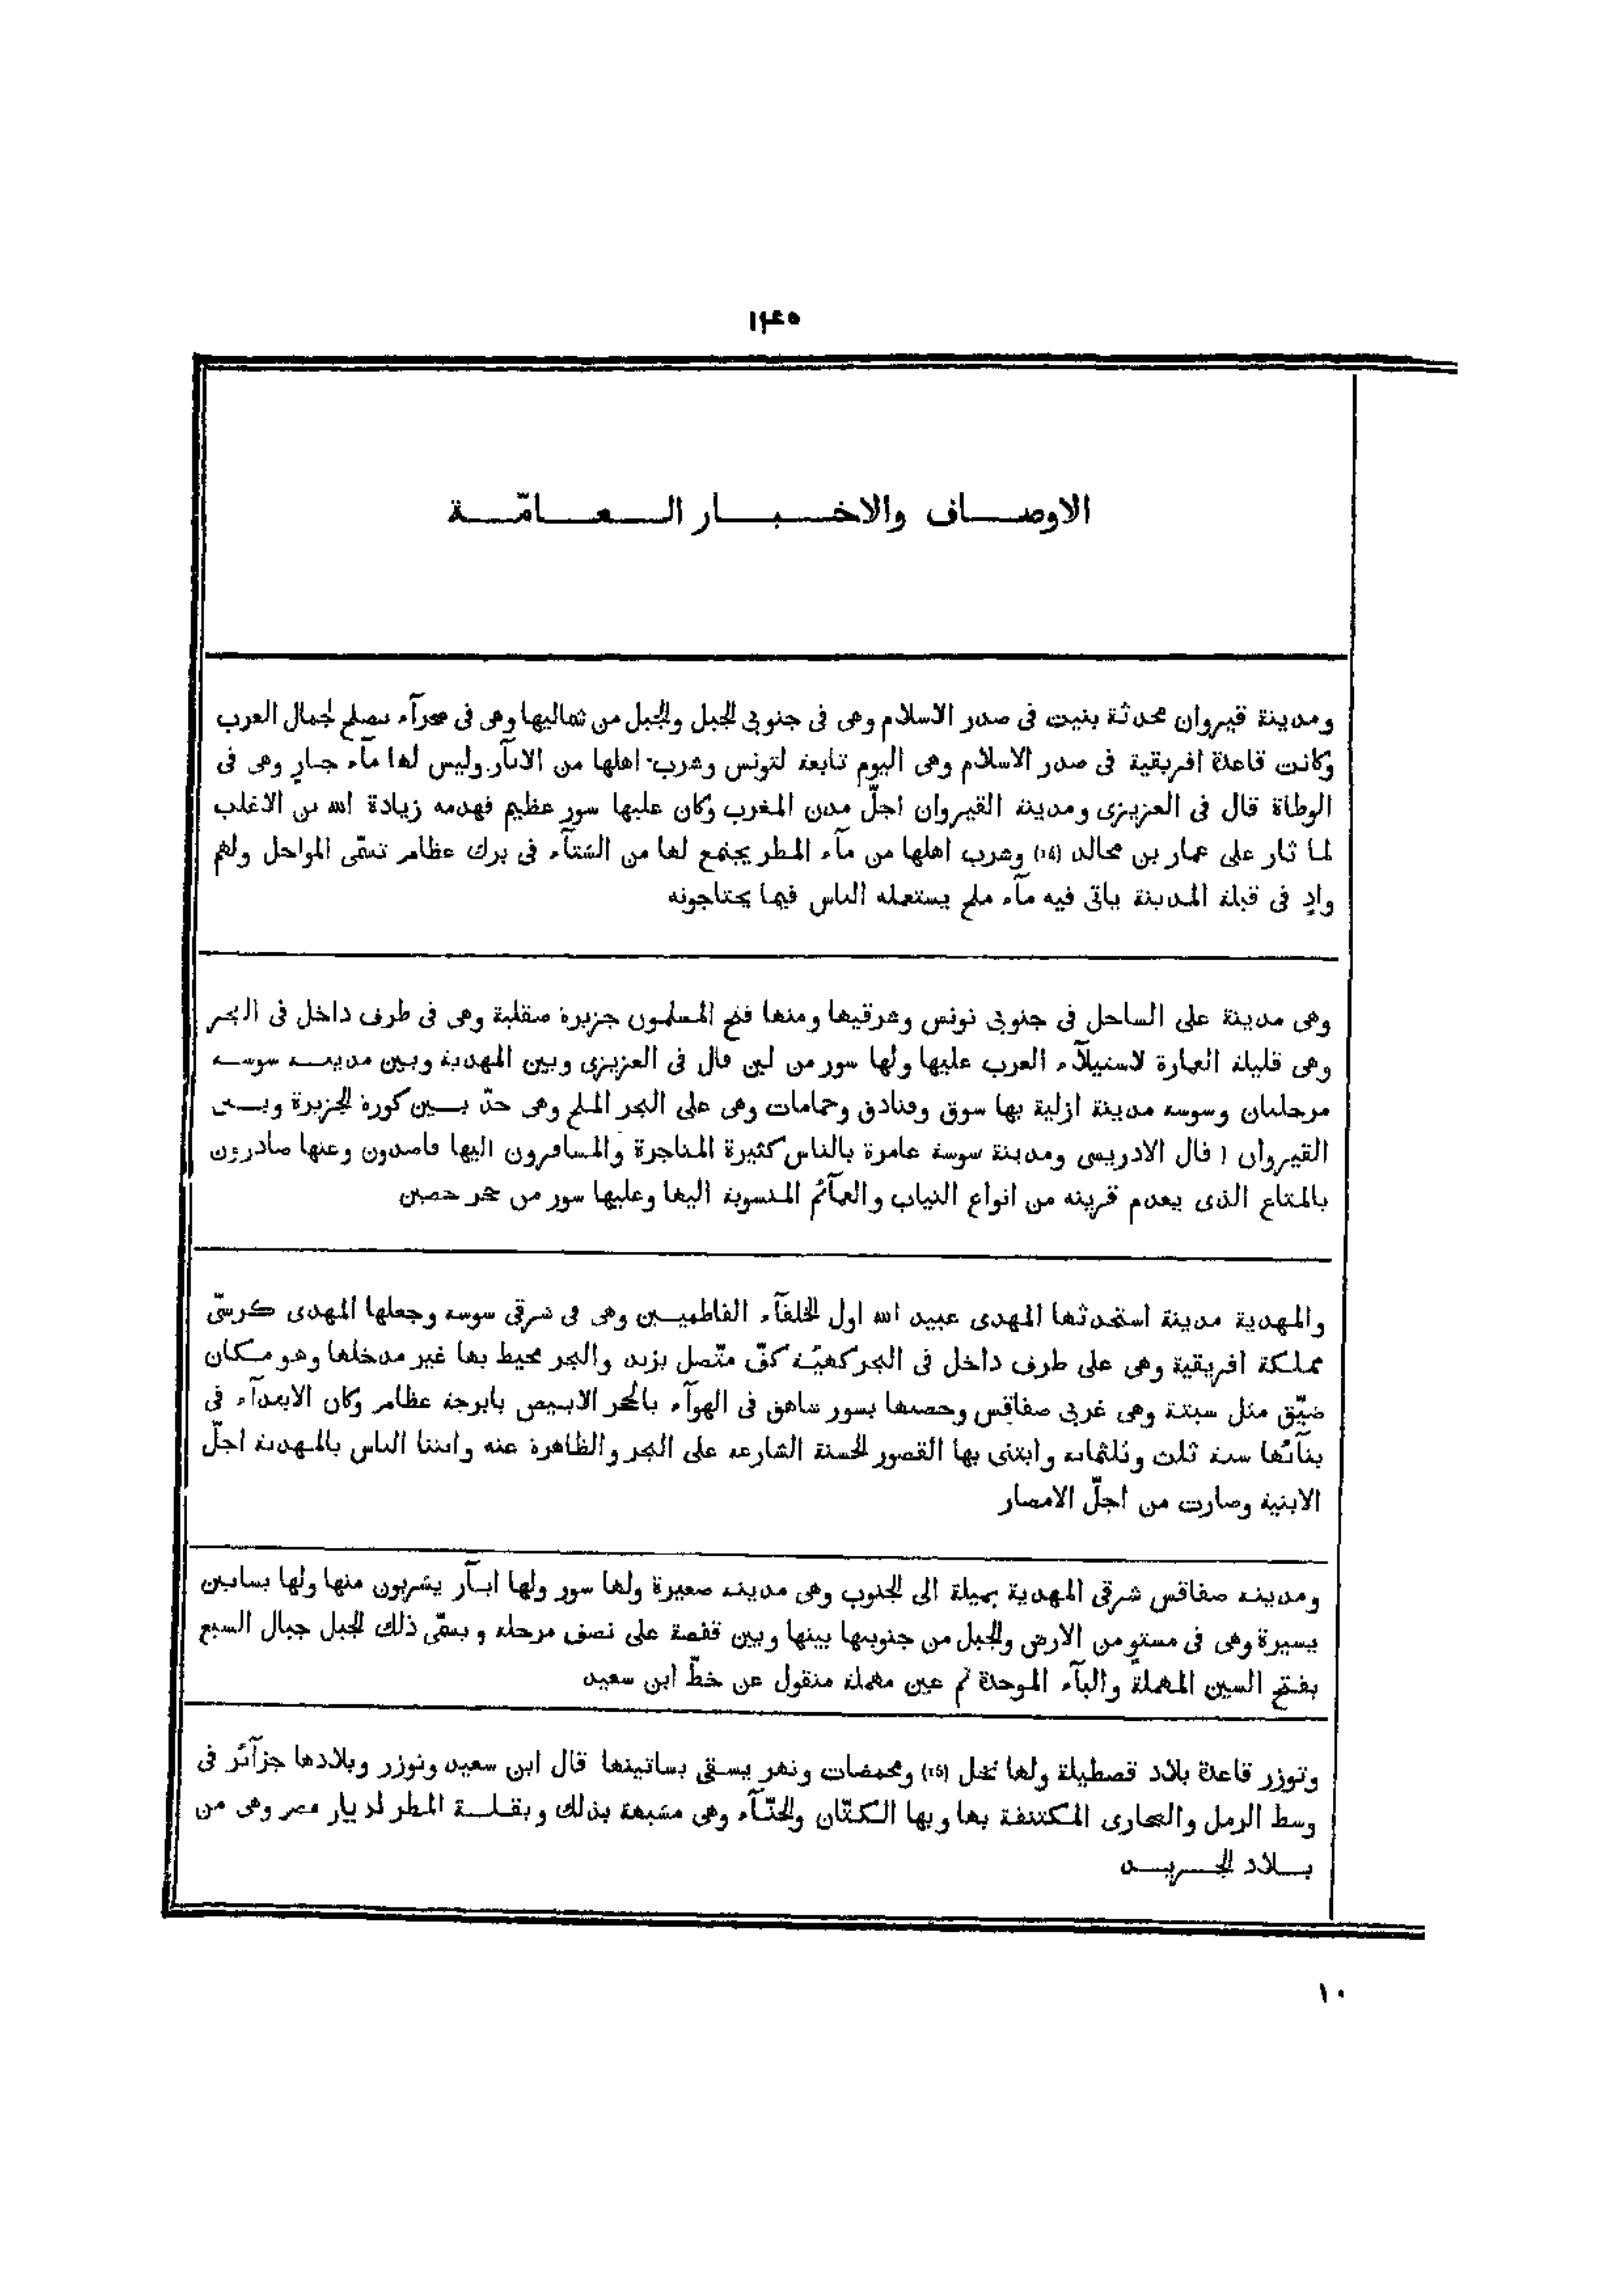 ١٤٥
الاوصاف والاخبار العامّة
ومدينة قيروان محدثة بنيت فى صدر الاسلام وهى فى جنوبى الجبل والجبل من شماليها وهى فى صحرآء تصلح لجمال العرب
وكانت قاعدة افريقية فى صدر الاسلام وهى اليوم تابعة لتونس وشرب اهلها من الابآر وليس لها مآء جارٍ وهى فى
الوطاة قال فى العزيزى ومدينة القيروان اجلّ مدن المغرب وكان عليها سور عظيم فهدمه زيادة الله بن الاغلب
لما ثار على عمار بن مجالد (14) وشرب اهلها من مآء المطر يجتمع لها من الشتآء فى برك عظام تسمّى المواجل ولهم
وادٍ فى قبلة المدينة ياتى فيه مآء ملح يستعمله الناس فيما يحتاجونه
وهى مدينة على الساحل فى جنوبى تونس وشرقيها ومنها فتح المسلمون جزيرة صقلية وهى فى طرف داخل فى البحر
وهى قليلة العمارة لاستيلآء العرب عليها ولها سور من لبن قال فى العزيزى وبين المهدية وبين مدينة سوسة
مرحلتان وسوسة مدينة ازلية بها سوق وفنادق وحمامات وهى على البحر الملح وهى حدّ بين كورة الجزيرة وبين
القيروان ( قال الادريسى ومدينة سوسة عامرة بالناس كثيرة المتاجرة والمسافرون اليها قاصدون وعنها صادرون
بالمتاع الذى يعدم قرينه من انواع الثياب والعمآئم المنسوبة اليها وعليها سور من حجر حصين
والمهدية مدينة استحدثها المهدى عبيد الله اول الخلفآء الفاطميين وهى فى شرقى سوسة وجعلها المهدى كرسّى
مملكة افريقية وهى على طرف داخل فى البحر كهيّة كفّ متّصل بزند والبحر محيط بها غير مدخلها وهو مكان
ضيّق مثل سبتة وهى غربى صفاقس وحصنها بسور شاهق فى الهوآء بالحجر الابيض بابرجة عظام وكان الابتدآء فى
بنآئها سنة ثلث وثلثماية وابتنى بها القصور الحسنة الشارعة على البحر والظاهرة عنه وابتنا الناس بالمهدية اجلّ
الابنية وصارت من اجلّ الامصار
ومدينة صفاقس شرقى المهدية بميلة الى الجنوب وهى مدينة صغيرة ولها سور ولها ابآر يشربون منها ولها بساتين
يسيرة وهى فى مستوٍ من الارض والجبل من جنوبيها بينها وبين قفصة على نصف مرحلة ويسمّى ذلك الجبل جبال السبع
بفتح السين المهملة والبآء الموحدة ثم عين مهملة منقول عن خطّ ابن سعيد
وتوزر قاعدة بلاد قصطيلة ولها نخل (15) ومحمضات ونهر يسقى بساتينها قال ابن سعيد وتوزر وبلادها جزآئر فى
وسط الرمل والصحارى المكتنفة بها وبها الكتّان والحنّآء وهى مشبهة بذلك وبقلة المطر لديار مصر وهى من
بلاد الجريد
١٠